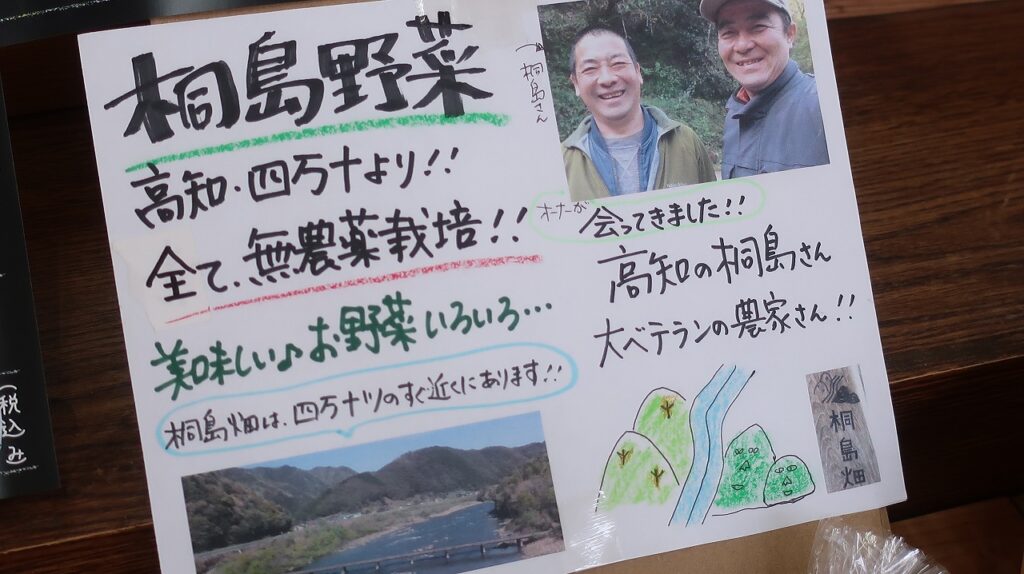 桐島野菜
高知・四万十より!!
全て、無農薬栽培!!
美味しい♪お野菜いろいろ…
桐島畑は、四万十川のすぐ近くにあります!!
桐島さん
オーナーが会ってきました!!
高知の桐島さん
大ベテランの農家さん!!
桐島畑
(税込み